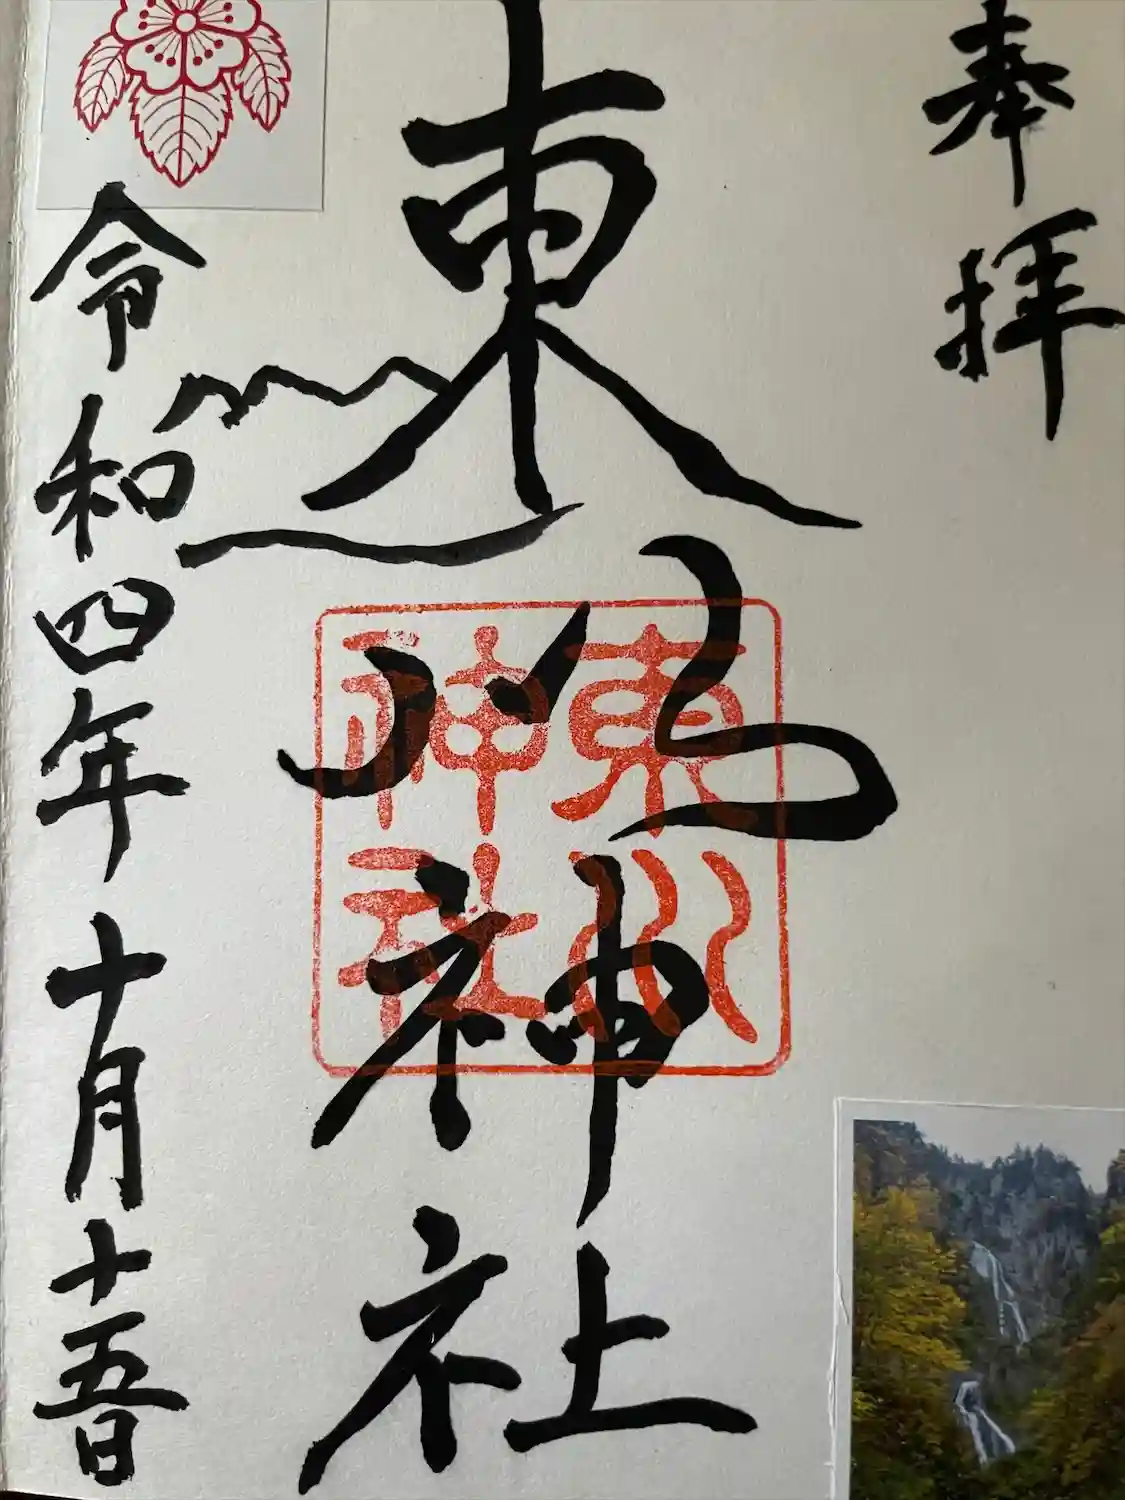 奉拝
東川神社
東川
神社
令和四年十月十五日